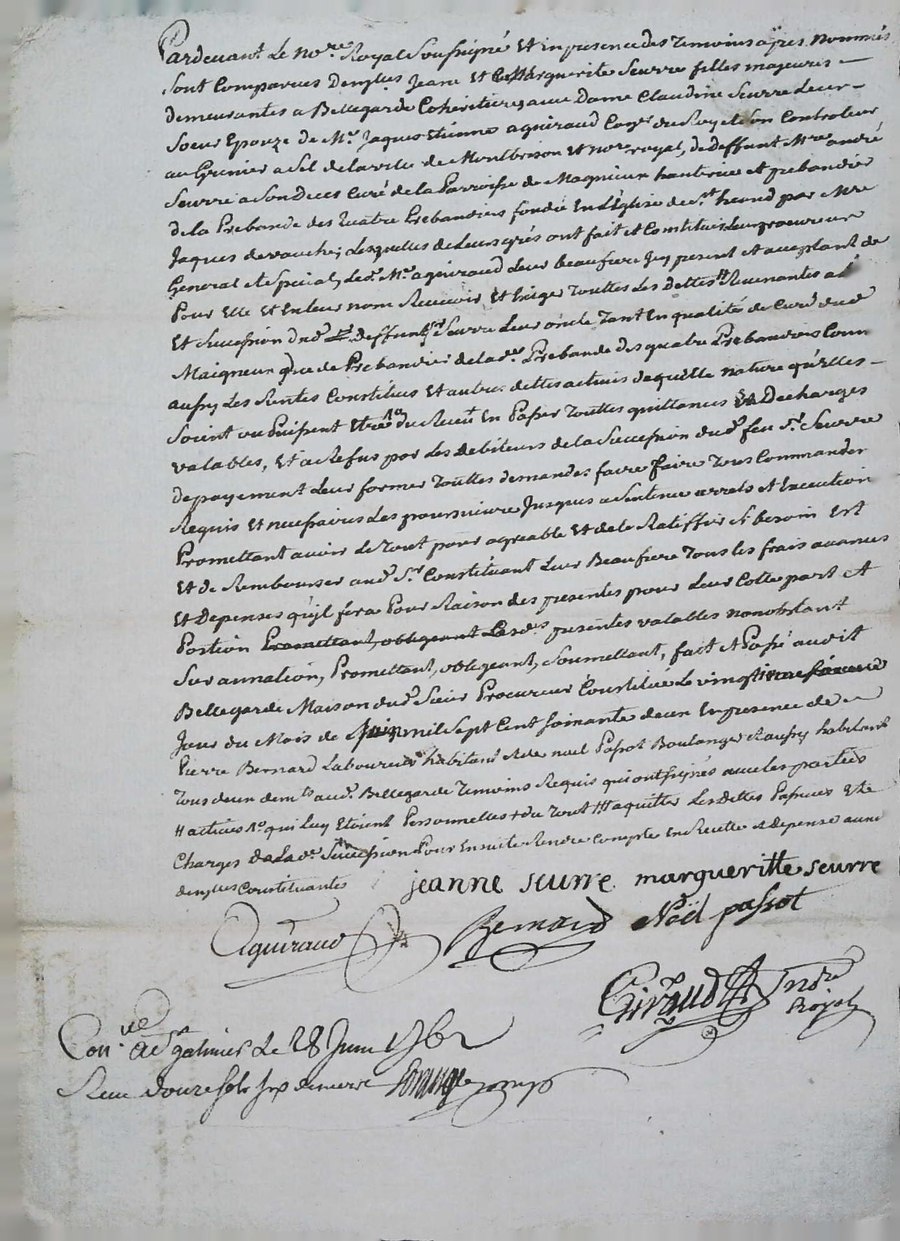 Pardeuant Le no.re Royal Soussigné Et en presence des temoins apres nommés
Sont Comparues dem.lles Jeane Et Marguerite Seurre filles majeures
demeurantes a Bellegarde Coheritieres auec Dame Claudine Seurre Leur
Soeur Epouze de M.r Jaques Etienne aguiraud Con.er du Roy et son Controleur
au Grenier a Sel de la ville de Montbrison Et no.re royal, de deffunt M.re andré
Seurre a Son deces Curé de la Parroisse de Magnieu hauterive et prebandier
de la Prebande des quatre Prebandiers fondée En L'Eglise de S.t heand par M.re
Jaques devauche; Lesquelles de Leurs grés ont fait et Constitué Leur procureur
General et Special, Led. M.r aguiraud Leur beaufrere Icy present et acceptant de
Pour Elle et En leur nom Recevoir et Exiger Touttes Les dettes # Revenantes a
Et Succession dud. deffunt S.r Seurre Leur oncle Tant En qualité de Curé dud.
Maigneux que de Prebandier de lad. Prebande des quatre Prebandiers Comm
aussy Les Rentes Constitués Et autres dettes actives de quelle nature qu'Elles
Soient ou Puissent Etre du Receu En Passer Touttes quittances Et Decharges
valables, Et a Refus par Les Debiteurs de la Succession dud. feu S.r Seurre
de payement Leur former Touttes demandes faire faire Tous Commander
Requis Et necessaires Les poursuivre Jusques a Sentence arrets et Execution
Promettant avoir Le Tout pour agreable Et de le Ratiffier Si besoin Est
Et de Rembourser aud. S.r Constituant Leur Beaufrere Tous les frais avances
Et Depenses qu'il fera Pour Raison des presentes pour Leur Cotte part et
Portion Promettant, obligeant Lesd.es presentes valables nonobstant
Surannation, Promettant, obligeant, Soumettant, fait et Passé audit
Bellegarde Maison dud. Sieur Procureur Constitué Le vingt
Jour du Mois de Juin mil Sept Cent Soixante deux En presence de
Pierre Bernard Laboureur habitant et de noel Passot Boulanger aussy habitant
Tous deux dem.ts aud. Bellegarde Temoins Requis qui ont signés avec les parties
# actives qui Luy Etoient Personnelles du Tout aquitter Les Dettes Passives Et
Charges de Lad. Succession Pour Ensuite Rendre Compte En Recette et depense aux
dem.lles Constituantes
jeanne seurre margueritte seurre
Aguiraud Bernard Noël passot
Giraud no.re Royal
Con.lé a S.t galmier Le 28 Juin 1762
Receu douze sols six deniers